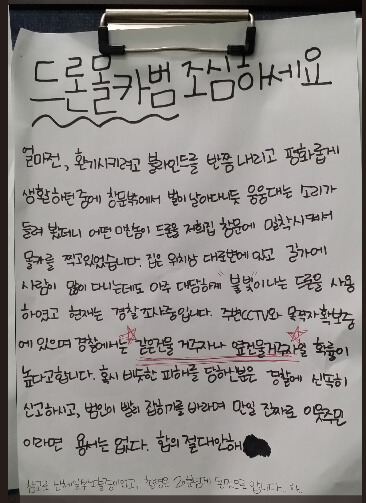 드론몰카범 조심하세요
얼마전, 환기시키려고 블라인드를 반쯤 내리고 평화롭게
생활하던 중에 창문밖에서 벌이 날아다니듯 웅웅대는 소리가
들려 봤더니 어떤 미친놈이 드론을 저희집 창문에 밀착시켜서
몰카를 찍고있었습니다. 집은 위치상 대로변에 있고 길가에
사람이 많이 다니는데도 아주 대담하게 "불빛"이나는 드론을 사용
하였고 현재는 경찰 조사중입니다. 주변CCTV와 목격자확보중
에 있으며 경찰에서는 ☆같은건물 거주자나 옆건물거주자☆일 확률이
높다고합니다. 혹시 비슷한 피해를 당하신분은 경찰에 신속히
신고하시고, 범인이 빨리 잡히기를 바라며 만일 진짜로 이웃주민
이라면 용서는 없다. 합의 절대안해